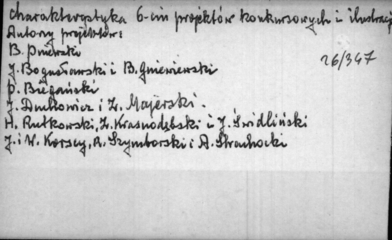 charakterystyka 6-ciu projektów konkursowych i ilustracje
Autorzy projektów:
B. Pniewski
26/347
J. Bogusławski i B. Gniewiewski
P. Biegański
J. Dutkowicz i Z. Majerski.
H. Rutkowski, Z. Krasnodębski i J. Świdliński
J. i W. Korscy, R. Szymborski i A. Strachocki